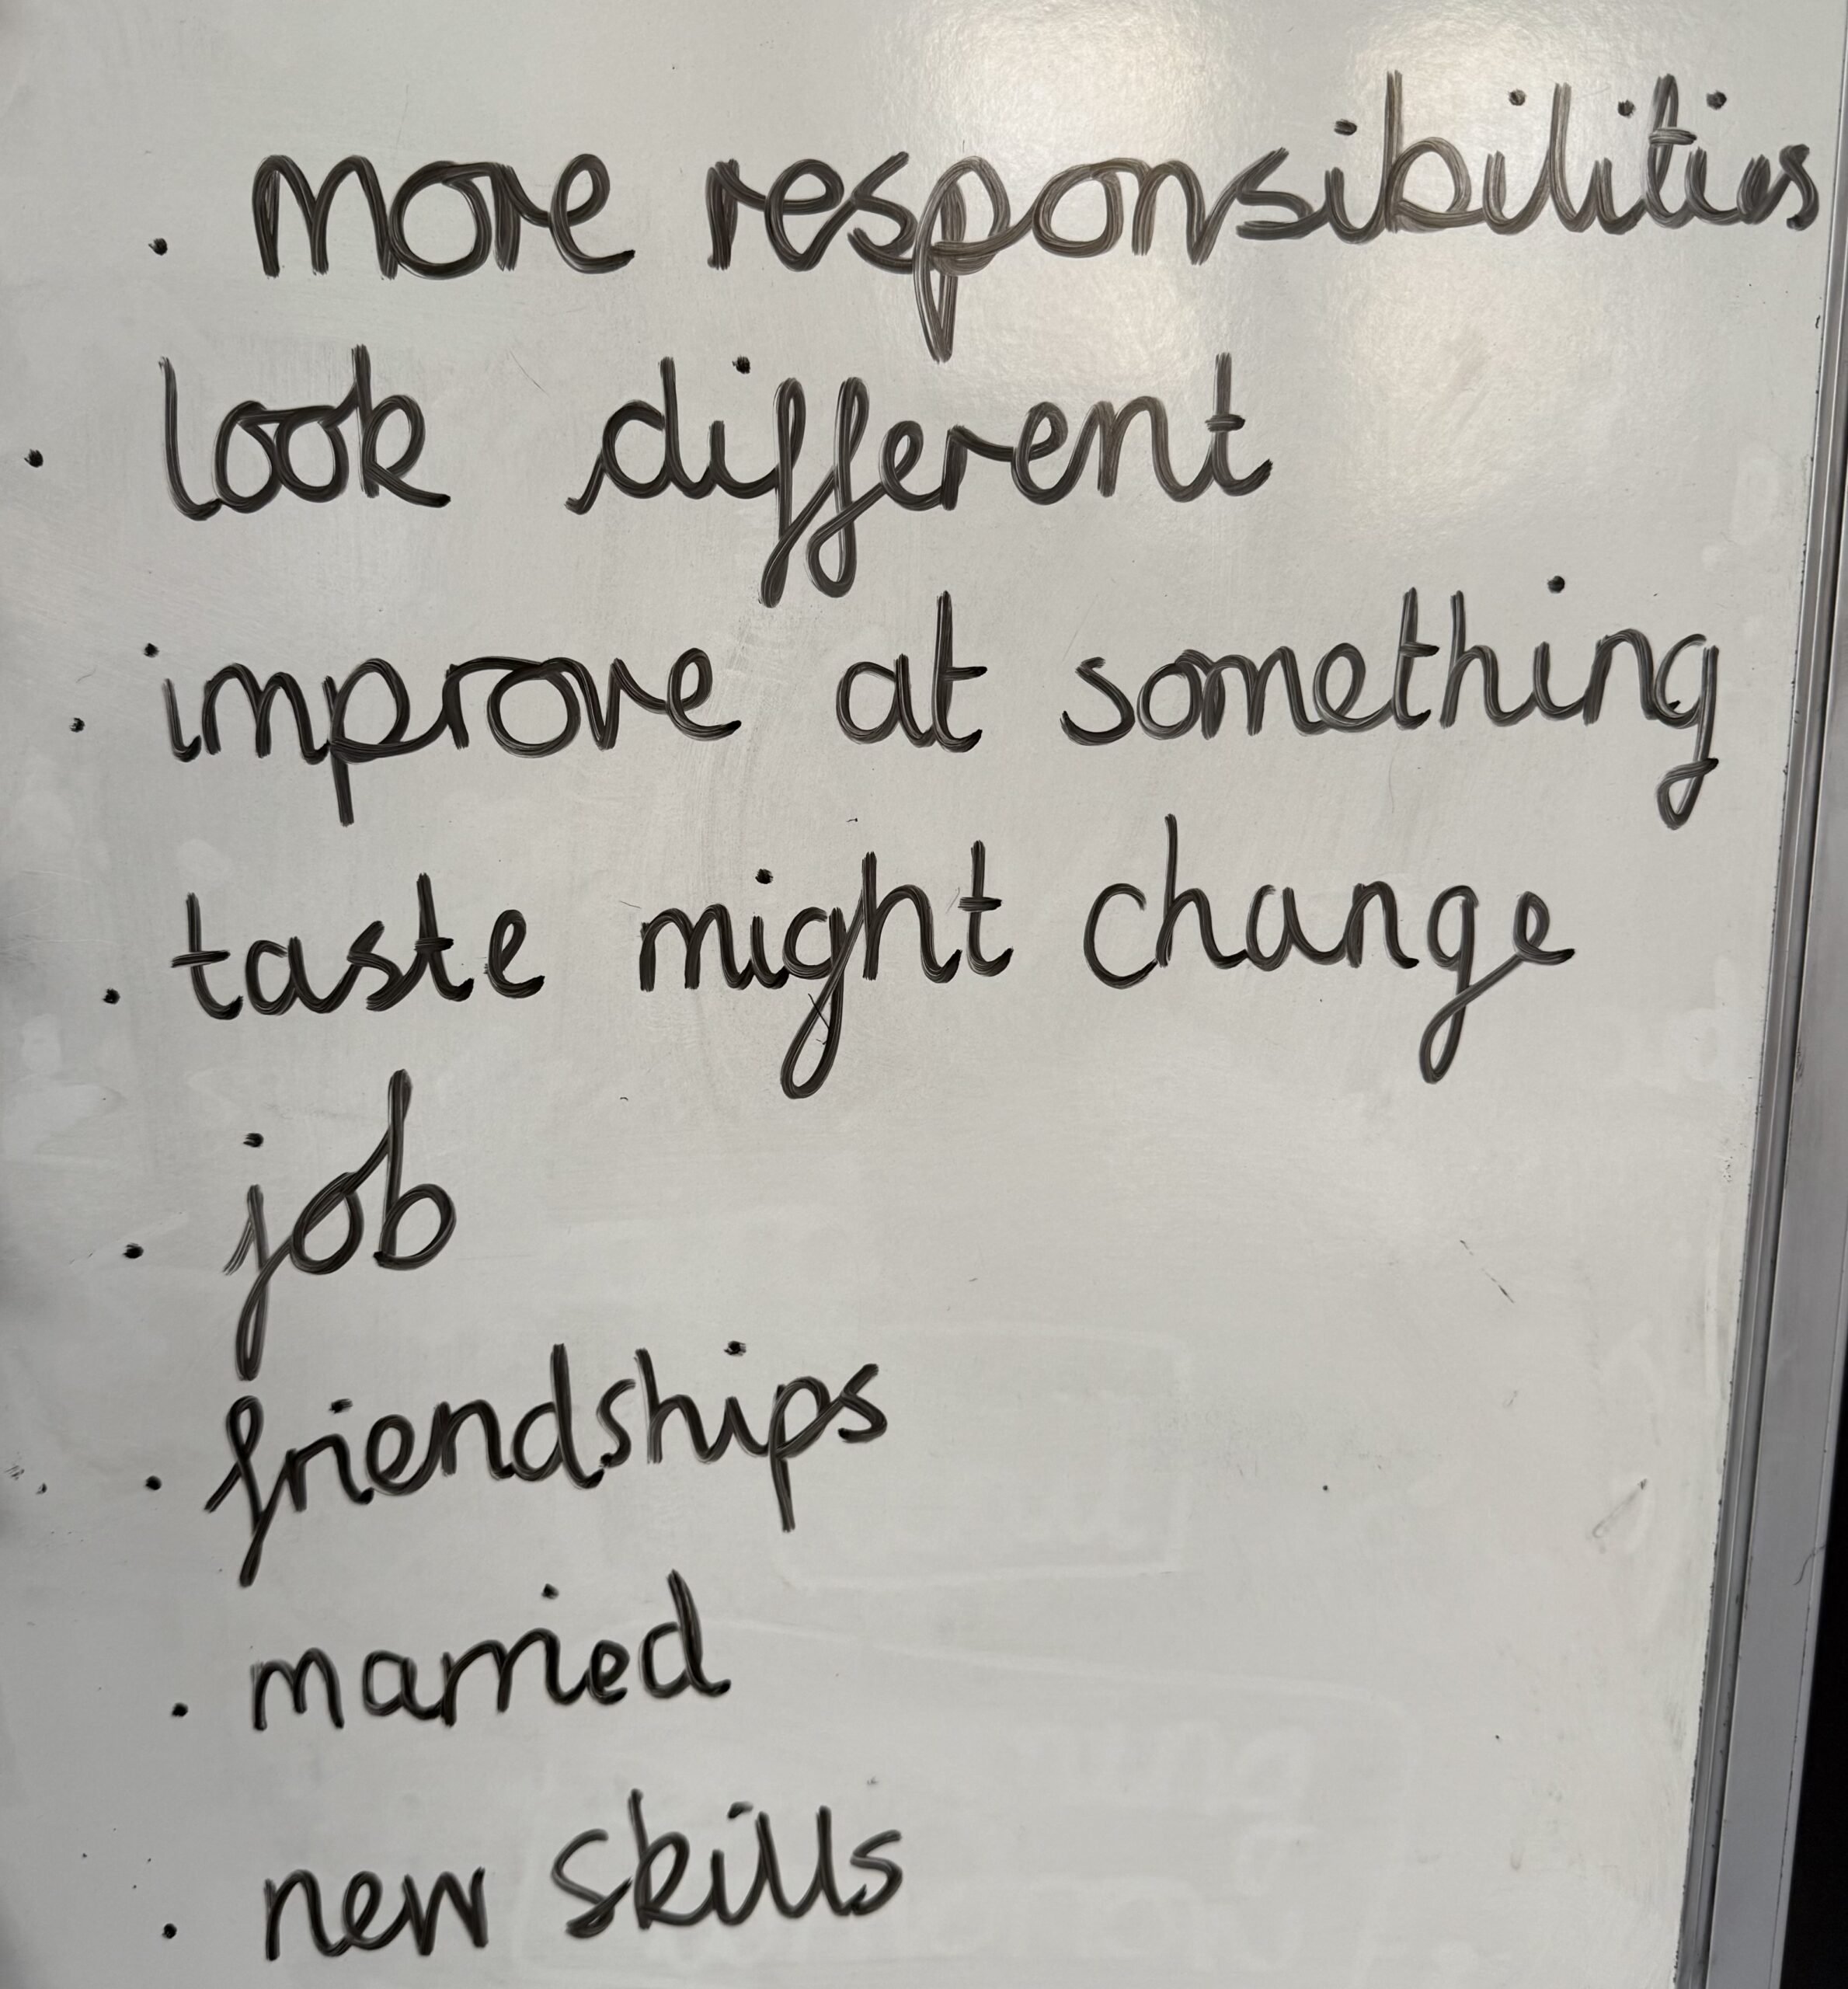 . more responsibilities
. look different
. improve at something
. taste might change
. job
. friendships
. married
. new skills